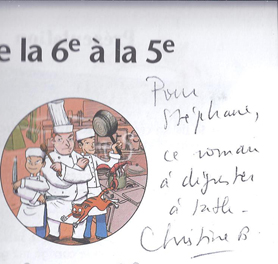 e la 6e à la 5e
Pour
Stéphane,
ce roman
à déguster
à
Christine B.